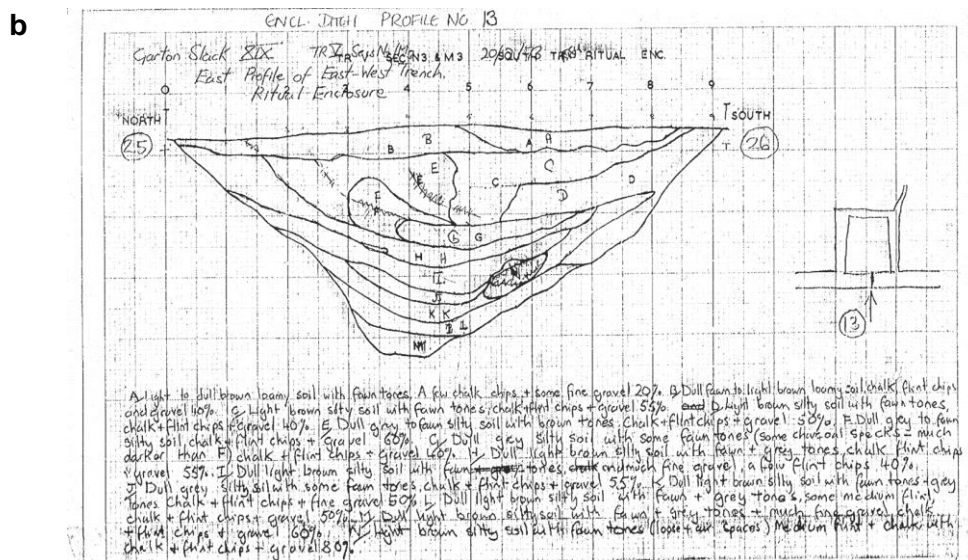 b
ENCL. DITCH PROFILE NO. 13
Garton Slack XIX. TR V SEC N3 & M3 RITUAL ENC.
East Profile of East-West Trench.
Ritual Enclosure
0 3 4 5 6 7 8 9
NORTH SOUTH
25 26
B A A
B
E C
E C D D
F
G G
H H
I
J
K K
L
M
13
A Light to dull brown loamy soil with fawn tones. A few chalk chips + some fine gravel 20%. B. Dull fawn to light brown loamy soil, chalk, flint chips
and gravel 40%. C. Light brown silty soil with fawn tones, chalk + flint chips + gravel 55%. D. Light brown silty soil with fawn tones,
chalk + flint chips + gravel 40%. E. Dull grey to fawn silty soil with brown tones. Chalk + Flint chips + gravel 50%. F. Dull grey to fawn
silty soil, chalk + flint chips + gravel 60%. G. Dull grey silty soil with some fawn tones (some charcoal specks - much
darker than F) chalk + flint chips + gravel 40%. H. Dull light brown silty soil with fawn + grey tones, chalk flint chips
+ gravel 55%. I. Dull light brown silty soil with fawn tones, and much fine gravel, a few flint chips 40%.
J. Dull grey silty soil with some fawn tones, chalk + flint chips + gravel 55%. K. Dull light brown silty soil with fawn tones + grey
tones. Chalk + flint chips + fine gravel 50%. L. Dull light brown silty soil with fawn + grey tones, some medium flint,
chalk + flint chips + gravel 50%. Dull light brown silty soil with fawn + grey tones + much fine gravel chalk
+ flint chips + gravel 60%. Light brown silty soil with fawn tones (loose + air spaces) Medium flint + chalk with
chalk + flint chips + gravel 80%.